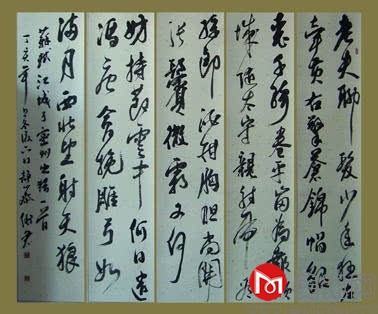 老夫聊發少年狂左
牽黃右擎蒼錦帽貂
裘千騎卷平岡為報傾
城隨太守親射虎看
孫郎酒酣胸膽尚開
張鬢微霜又何
妨持節雲中何日遣
馮唐會挽雕弓如
滿月西北望射天狼
蘇軾江城子密州出獵一首
丁亥年冬